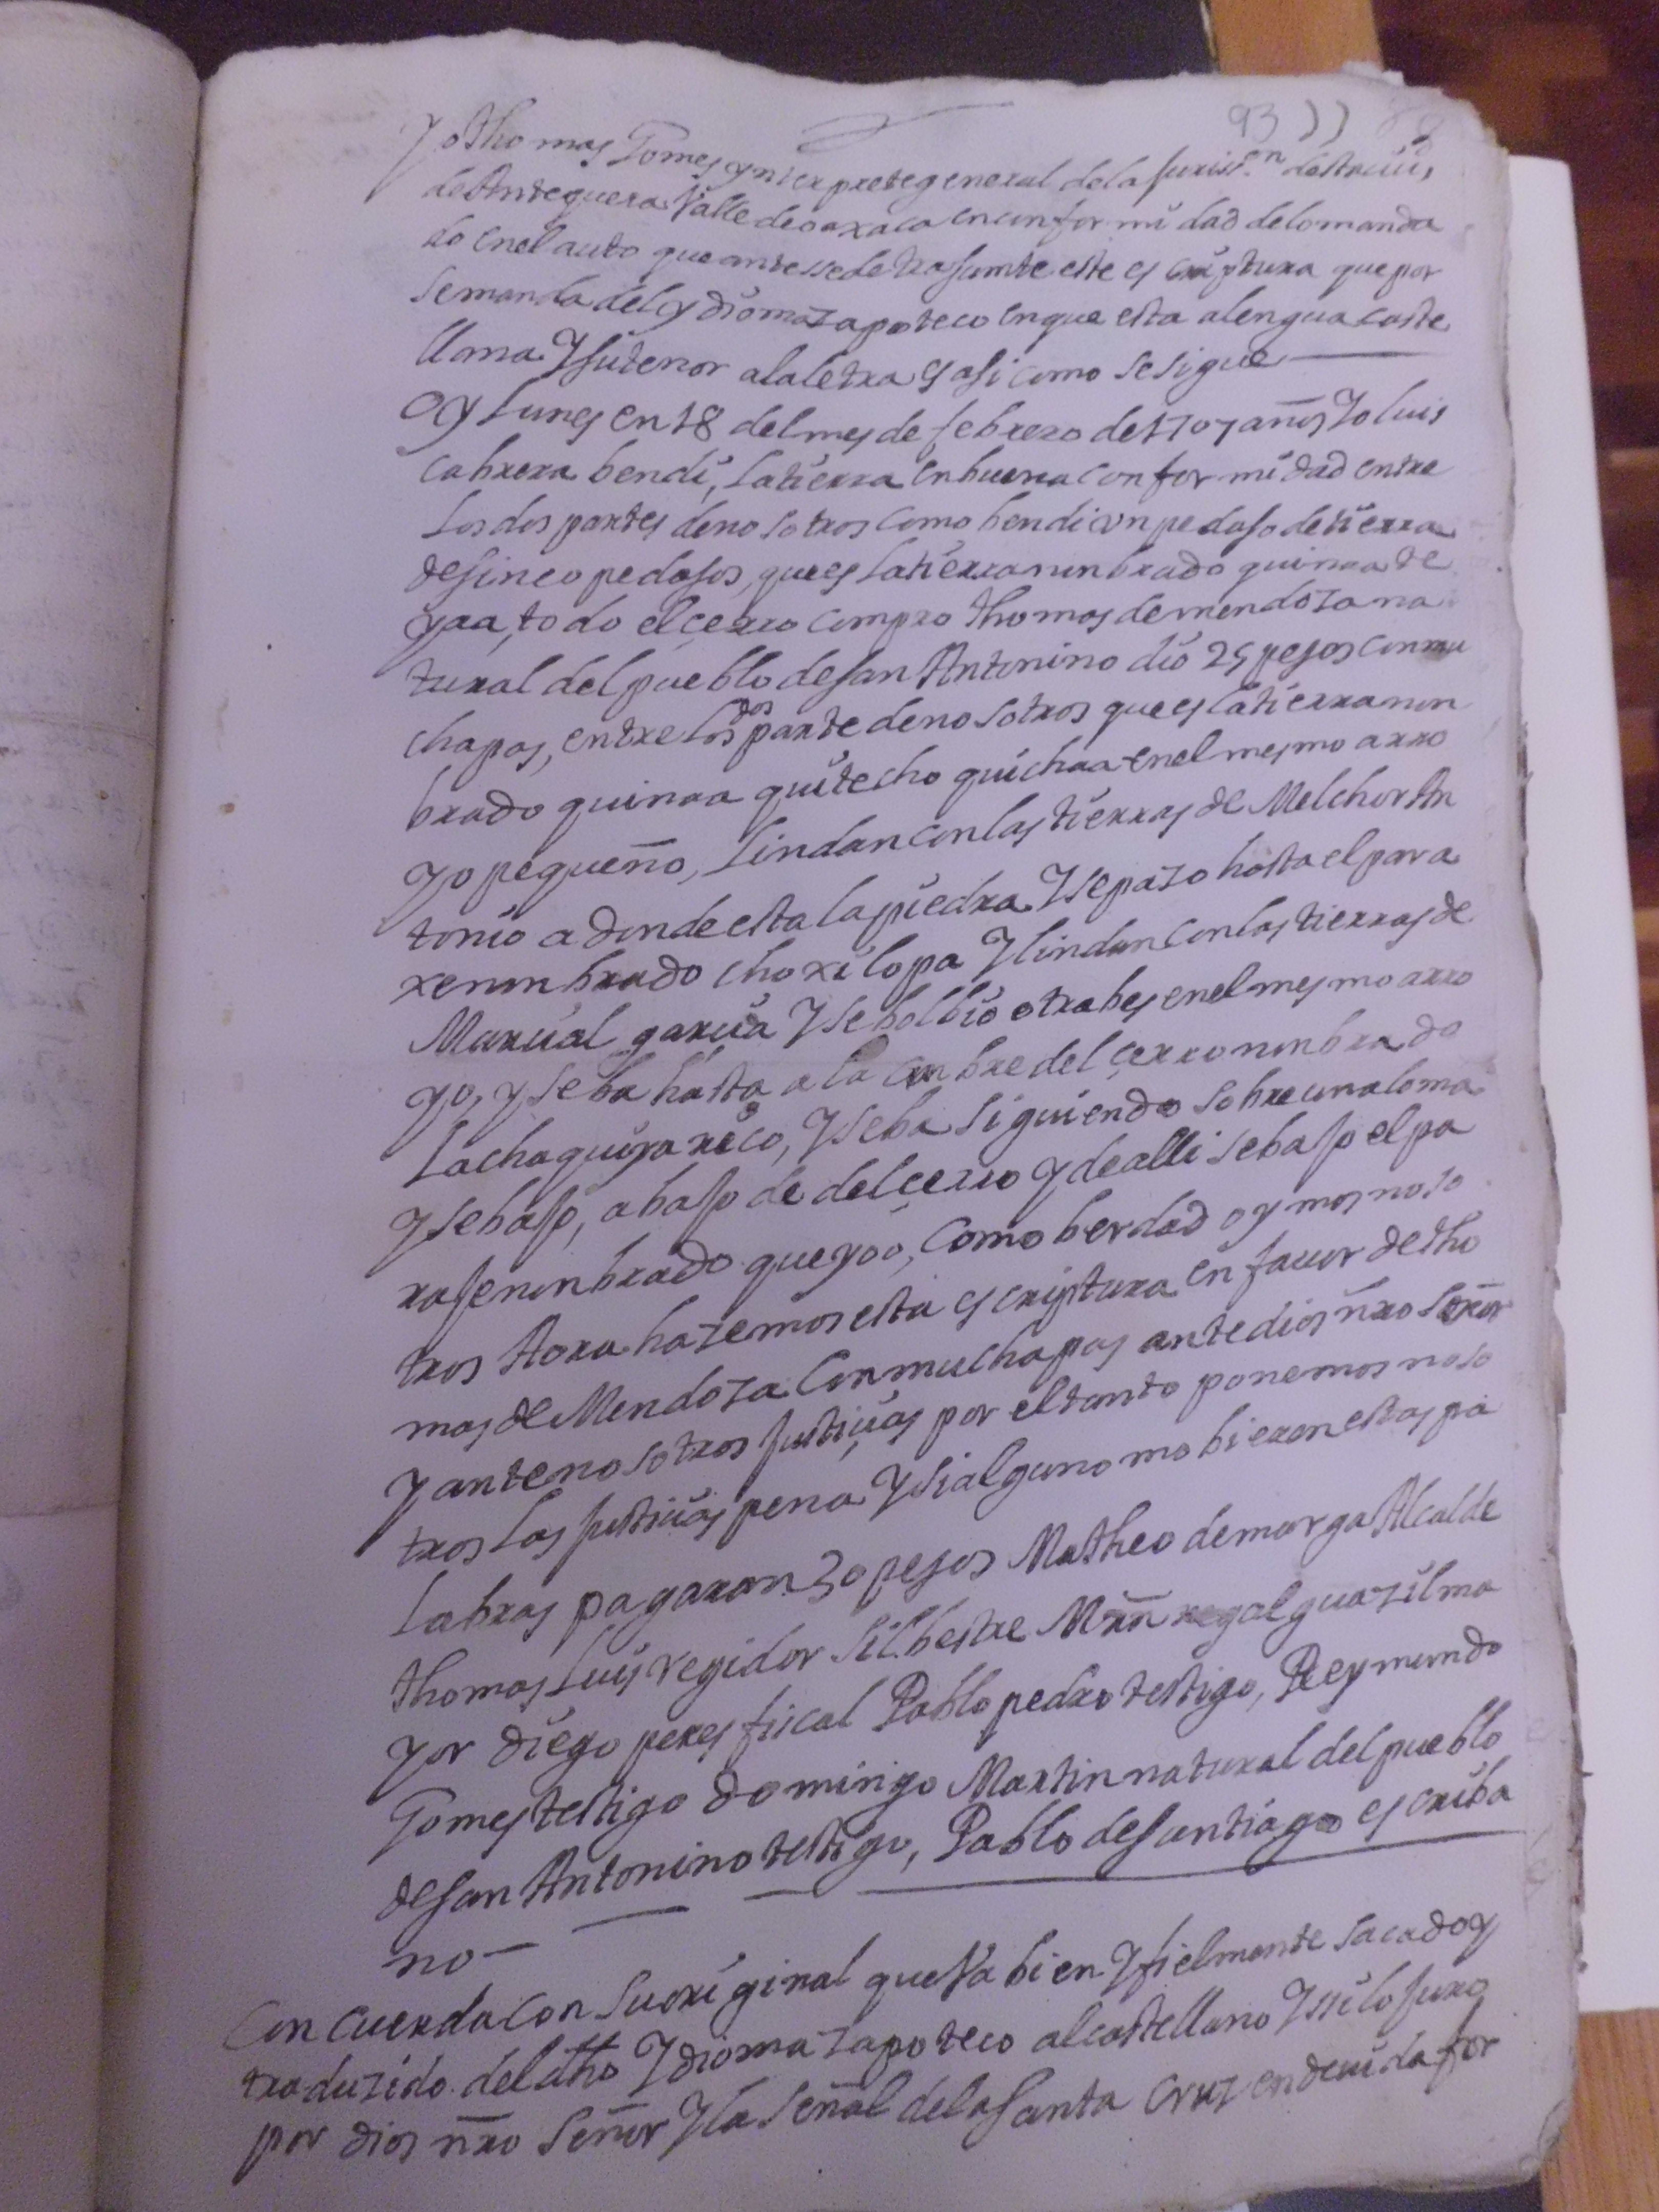 93
Yo thomas Gomes ynterprete general de la Jurist.n desta ciud
de Antequera Valle de oaxaca en conformidad de lo manda
do en el auto que antessede trasumte este escriptura que por
se manda del ydioma zapoteco en que esta a lengua caste
llana Y su tenor a la letra es asi como se sigue
Oy lunes en 18 del mes de febrero de 1707 años Yo luis
cabrera bendi, la tierra en buena conformidad entre
los dos partes de nosotros como bendi un pedaso de tierra
de sinco pedasos, que es la tierra nonbrado quinaa de
yaa, todo el çerro compro thomas de mendoza na
tural del pueblo de san Antonino dio 25 pesos con mu
cha pas, entre los dos parte de nosotros que es la tierra non
brado quinaa quitecho quichaa en el mesmo arro
yo pequeño, lindan con las tierras de Melchor An
tonio a donde esta la piedra Y se pazo hasta el para
xe nonbrado choxilopa Y lindan con las tierras de
Marcial garcia Y se bolbio otra bes en el mesmo arro
yo, y se ba hasta a la cunbre del çerro nonbrado
Lachaguiyaxico, Y se ba siguiendo sobre una loma
y se bajo, abajo de del çerro y de alli se bajo el pa
raje nonbrado queyoo, como berdad oymos noso
tros Aora hazemos esta escriptura en favor de tho
mas de Mendoza Con mucha pas ante dios ñro Señor
Y ante nosotros justiçias por el tanto ponemos noso
tros las justicias pena Y si alguno mobieron estas pa
labras pagaran 30 pesos Matheo de marga Alcalde
thomas Luis regidor Silbestre Mrñ alguazil ma
yor diego peres fiscal Pablo pedro testigo, Reymundo
Gomes testigo domingo Martin natural del pueblo
de san Antonino testigo, Pablo de santiago escriba
no
Concuerda con su original que Va bien Y fielmente sacado y
traduzido del dho Ydioma zapoteco al castellano Y ssi lo juro
por dios ñro Señor Y la Señal de la Santa Cruz en devida for